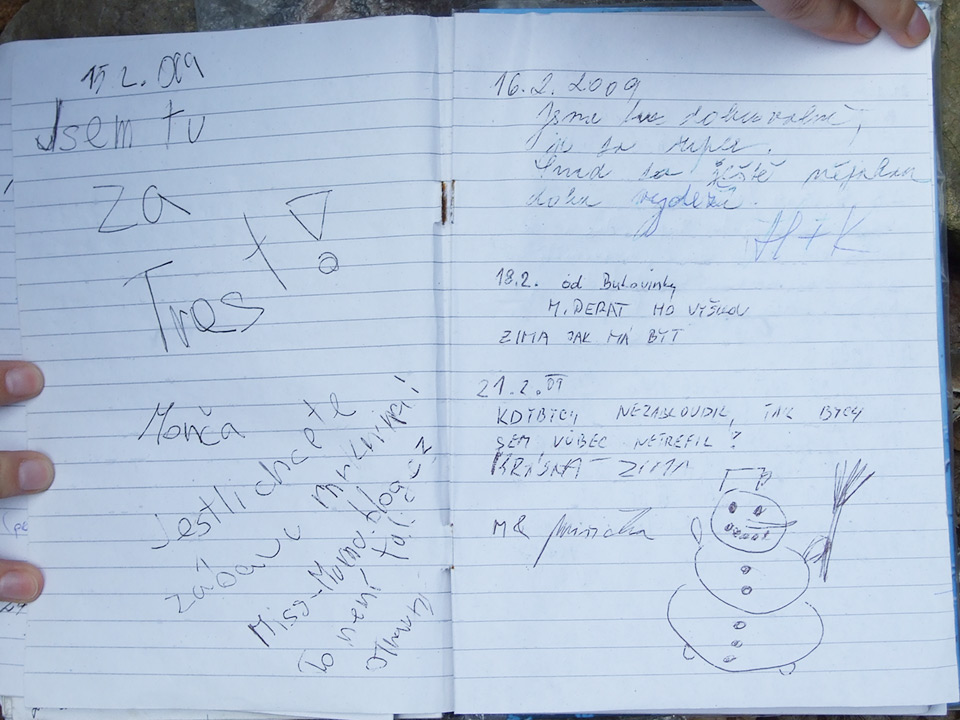 15.2.009
Jsem tu
za
Trest!
Monča
jestli chcete
zábavu mrkni na
Miss-Monca.blog.cz
To není
16.2.2009
Jsme tu dobrovolně,
je to super.
Snad to ještě nějakou
dobu vydrží.
H+K
18.2. od Bukovinky
M. DERAT NO VÝŠKOV
ZIMA JAK MÁ BÝT
21.2.09
KDYBYCH NEZABLOUDIL, TAK BYCH
SEM VŮBEC NETREFIL?
KRÁSNÁ ZIMA
M&